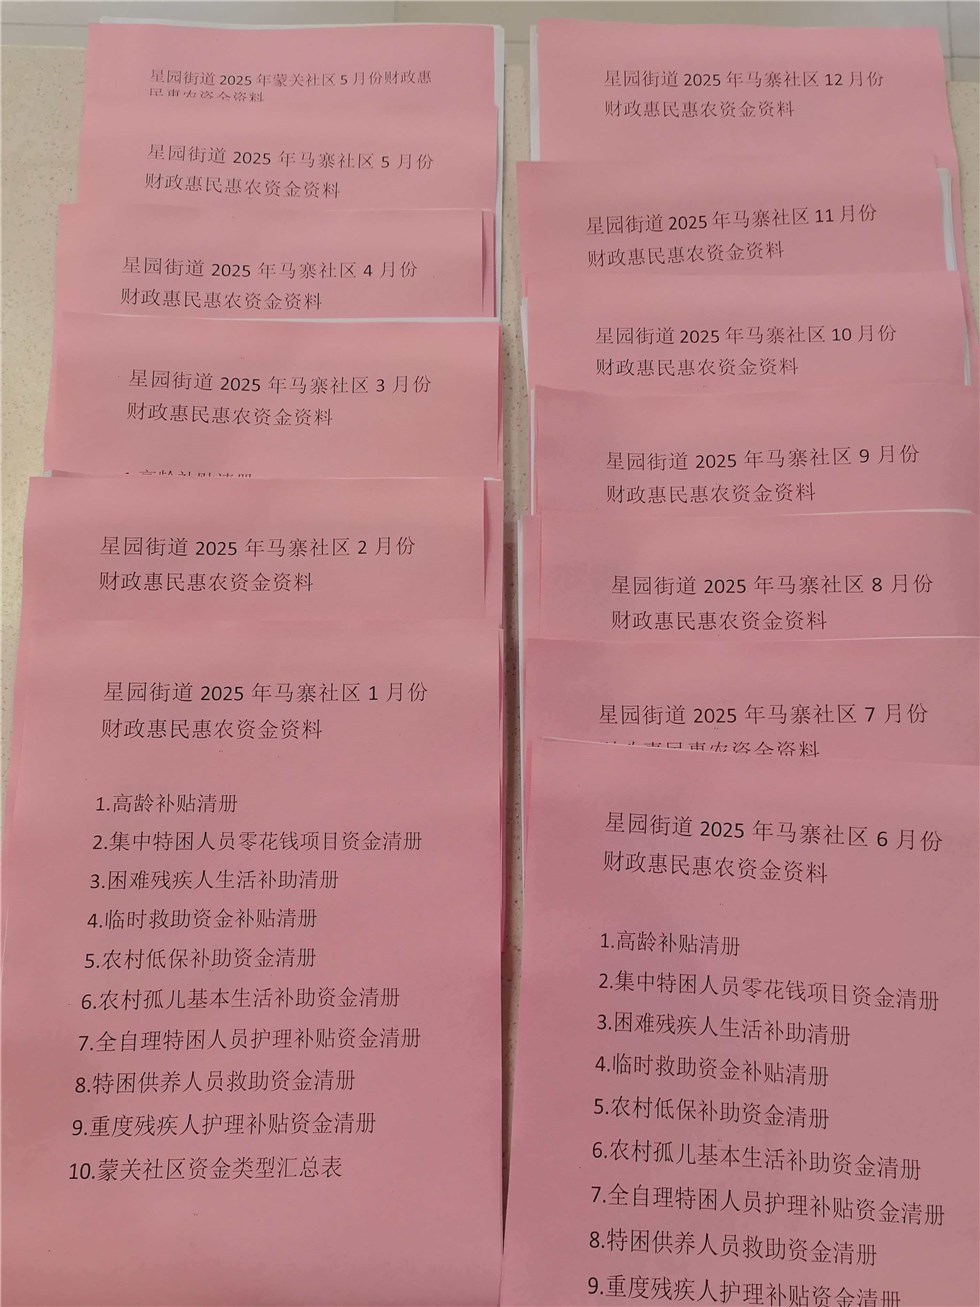 星园街道 2025 年蒙关社区 5 月份财政惠
民惠农资金资料
星园街道 2025 年马寨社区 5 月份
财政惠民惠农资金资料
星园街道 2025 年马寨社区 4 月份
财政惠民惠农资金资料
星园街道 2025 年马寨社区 3 月份
财政惠民惠农资金资料
1.高龄补贴清册
星园街道 2025 年马寨社区 2 月份
财政惠民惠农资金资料
星园街道 2025 年马寨社区 1 月份
财政惠民惠农资金资料
1.高龄补贴清册
2.集中特困人员零花钱项目资金清册
3.困难残疾人生活补助清册
4.临时救助资金补贴清册
5.农村低保补助资金清册
6.农村孤儿基本生活补助资金清册
7.全自理特困人员护理补贴资金清册
8.特困供养人员救助资金清册
9.重度残疾人护理补贴资金清册
10.蒙关社区资金类型汇总表
星园街道 2025 年马寨社区 12 月份
财政惠民惠农资金资料
星园街道 2025 年马寨社区 11 月份
财政惠民惠农资金资料
星园街道 2025 年马寨社区 10 月份
财政惠民惠农资金资料
星园街道 2025 年马寨社区 9 月份
财政惠民惠农资金资料
星园街道 2025 年马寨社区 8 月份
财政惠民惠农资金资料
星园街道 2025 年马寨社区 7 月份
财政惠民惠农资金资料
星园街道 2025 年马寨社区 6 月份
财政惠民惠农资金资料
1.高龄补贴清册
2.集中特困人员零花钱项目资金清册
3.困难残疾人生活补助清册
4.临时救助资金补贴清册
5.农村低保补助资金清册
6.农村孤儿基本生活补助资金清册
7.全自理特困人员护理补贴资金清册
8.特困供养人员救助资金清册
9.重度残疾人护理补贴资金清册